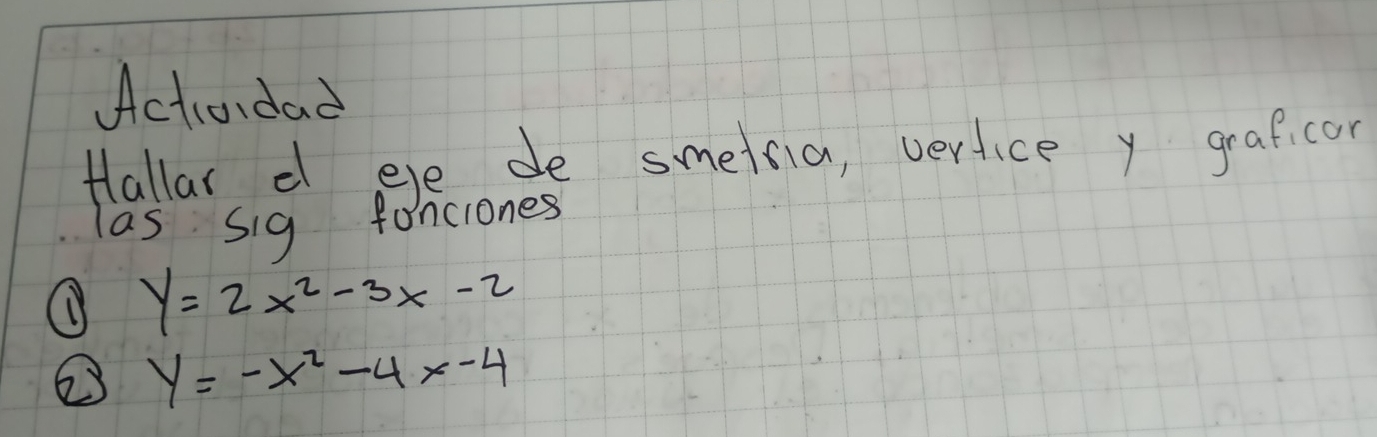 Actividad
Hallar el eje de smetria, vertice y graficar
las sig funciones
① Y = 2x² - 3x - 2
② Y = -x² - 4x - 4